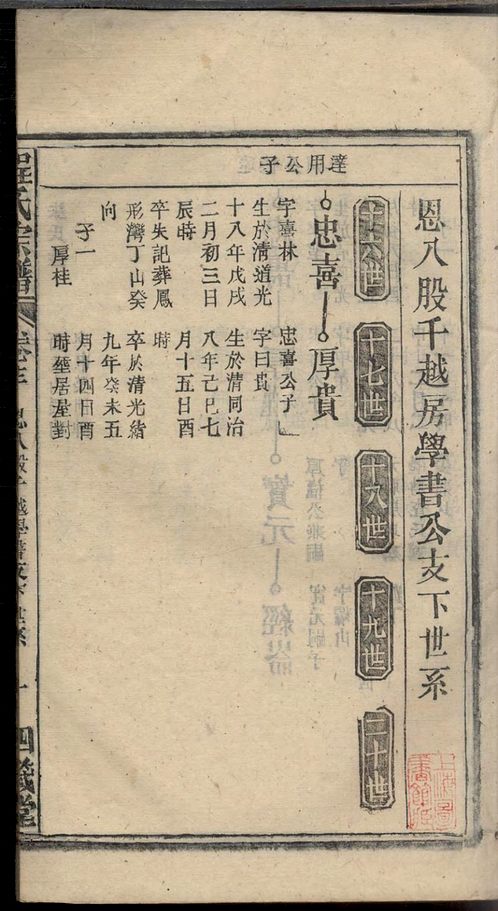 恩八股千越房學書公支下世系
十六世
十七世
十八世
十九世
二十世
達用公子
忠喜
厚貴
字喜林
生於清道光
十八年戊戌
二月初三日
辰時
卒失記葬鳳
形灣丁山癸
向
子一
厚桂
忠喜公子
字曰貴
生於清同治
八年己巳七
月十五日酉
時
卒於清光緒
九年癸未五
月十四日酉
時塟居屋對
氏宗譜
恩八股千越學書支下世系
四箴堂
上海圖
書館藏